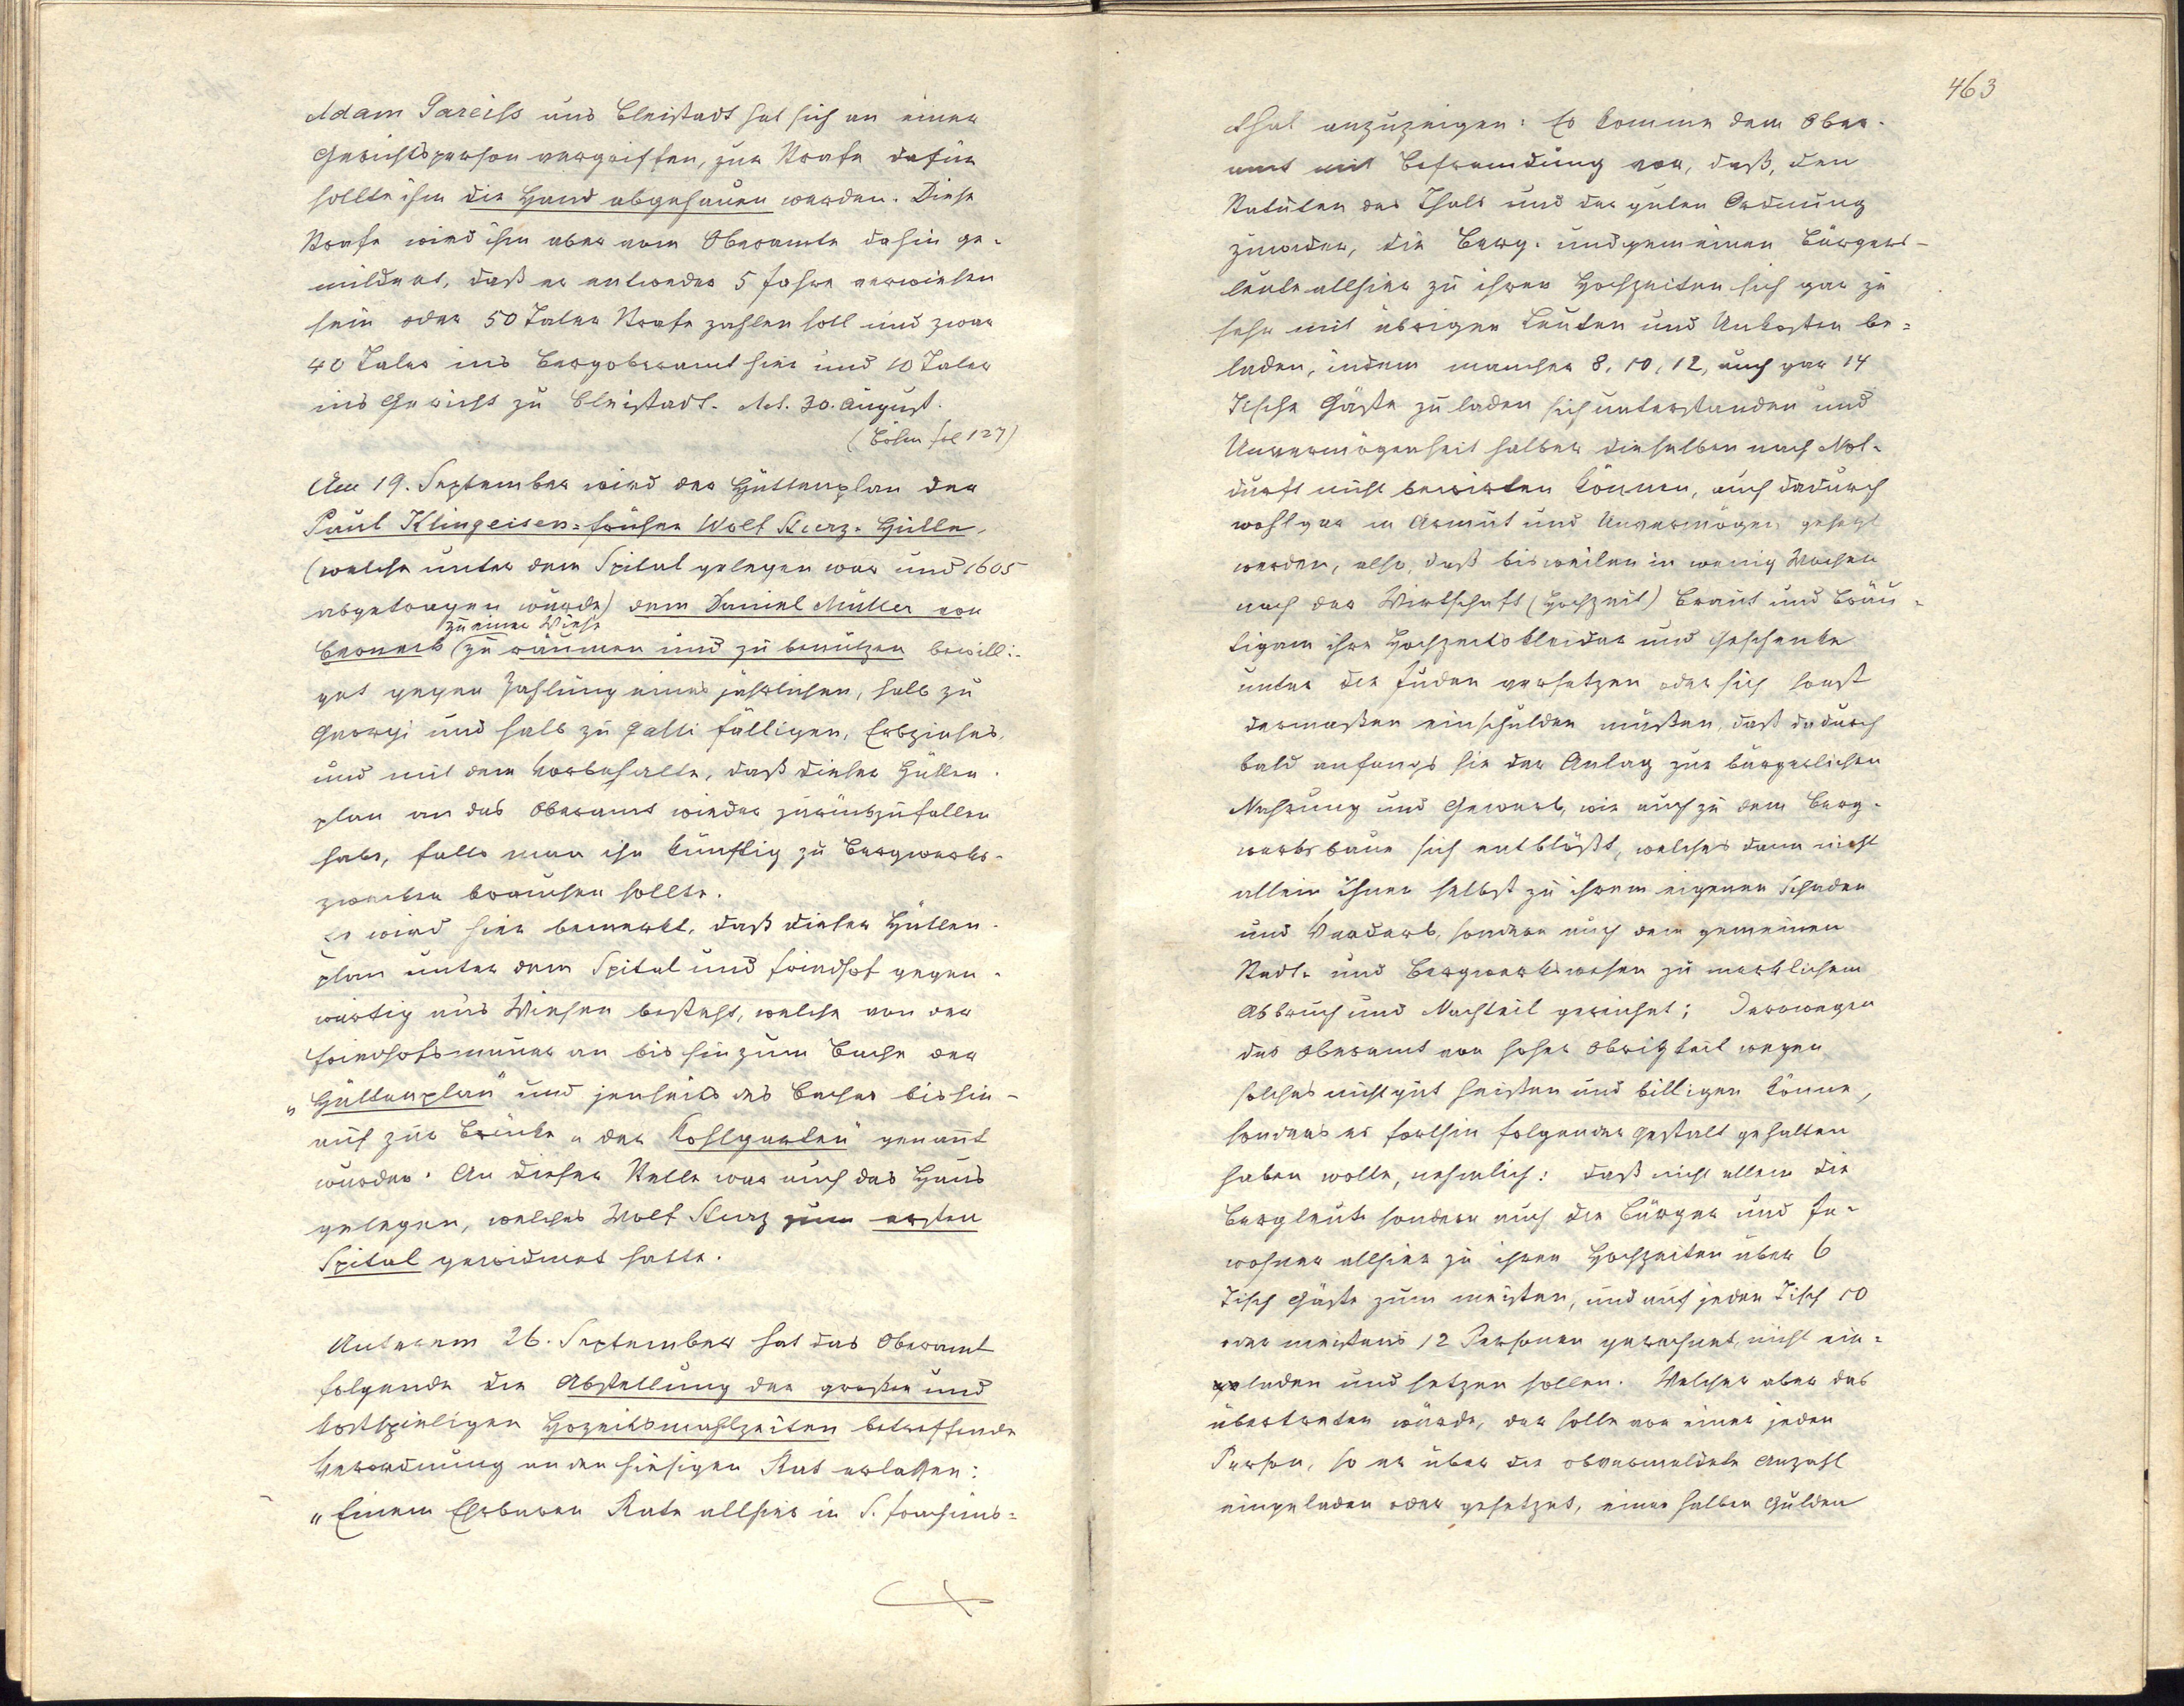 Adam Pareiss aus Bleistadt hat sich an einer
Gerichtsperson vergriffen, zur Strafe dafür
sollte ihm die Hand abgehauen werden. Diese
Strafe wird ihm aber vom Oberamte dahin ge-
mildert, daß er entweder 5 Jahre verwiesen
sein oder 50 Taler Strafe zahlen soll und zwar
40 Taler ins Bergoberamt hier und 10 Taler
ins Gericht zu Bleistadt. Act. 30. August.
(Böhm fol 127)
Am 19. September wird der Hüttenplan der
Paul Klingeisen= früher Wolf Sturz= Hütte,
(welche unter dem Spital gelegen war und 1605
abgetragen wurde) dem Daniel Müller von
zu einer Wiese
Berneck (zu räumen und zu benützen bewilli-
get gegen Zahlung eines jährlichen, halb zu
Georgi und halb zu Galli fälligen, Erbzinses,
und mit dem Vorbehalte, daß dieser Hütten-
plan an das Oberamt wieder zurückzufallen
habe, falls man ihn künftig zu Bergwerks-
zwecken brauchen sollte.
Es wird hier bemerkt, daß dieser Hütten-
plan unter dem Spital und Friedhof gegen-
wärtig aus Wiesen besteht, welche von der
Friedhofsmauer an bis hin zum Bache der
„Hüttenplan" und jenseits des Baches bis hin-
auf zur Brücke „der Kohlgarten" genannt
wurden. An dieser Stelle war auch das Haus
gelegen, welches Wolf Sturz zum ersten
Spital gewidmet hatte.
Unterem 26. September hat das Oberamt
folgende die Abstellung der großen und
kostspieligen Hozeitsmahlzeiten betreffende
Verordnung an den hiesigen Rat erlassen:
„Einem Ehrbaren Rate allhier in S. Joachims=
463
thal anzuzeigen: Es komme dem Ober-
amt mit Befremdung vor, daß, den
Statuten des Thals und der guten Ordnung
zuwider, die Berg- und gemeinen Bürgers-
leute allhier zu ihren Hochzeiten sich gar zu
sehr mit übrigen Leuten und Unkosten be=
laden, indem mancher 8, 10, 12, auch gar 14
Tische Gäste zu laden sich unterstanden und
Unvermögenheit halber dieselben nach Not-
durft nicht bewirten können, auch dadurch
wohl gar in Armut und Unvermögen gesetzt
werden, also, daß bisweilen in wenig Wochen
nach der Wirtschaft (Hochzeit) Braut und Bräu-
tigam ihre Hochzeitskleider und Geschenke
unter die Juden versetzen oder sich sonst
dermaßen einschulden müßten, daß dadurch
bald anfangs sie der Anlag zur bürgerlichen
Nahrung und Gewerb, wie auch zu dem Berg-
werksbaue sich entblößt, welches dann nicht
allein ihnen selbst zu ihrem eigenen Schaden
und Verderb, sondern auch dem gemeinen
Stadt- und Bergwerkswesen zu merklichem
Abbruch und Nachteil gereichet; Derowegen
das Oberamt von hoher Obrigkeit wegen
solches nicht gut heißen und billigen könne,
sonders es forthin folgender gestalt gehalten
haben wolle, nehmlich: daß nicht allein die
Bergleute sondern auch die Bürger und In-
wohner allhier zu ihren Hochzeiten über 6
Tisch Gäste zum meisten, und auf jeden Tisch 10
oder meistens 12 Personen gerechnet, nicht ein=
laden und setzen sollen. Welcher aber das
übertreten würde, der solle von einer jeden
Person, so er über die obvermeldete Anzahl
eingeladen oder gesetzet, einen halben Gulden